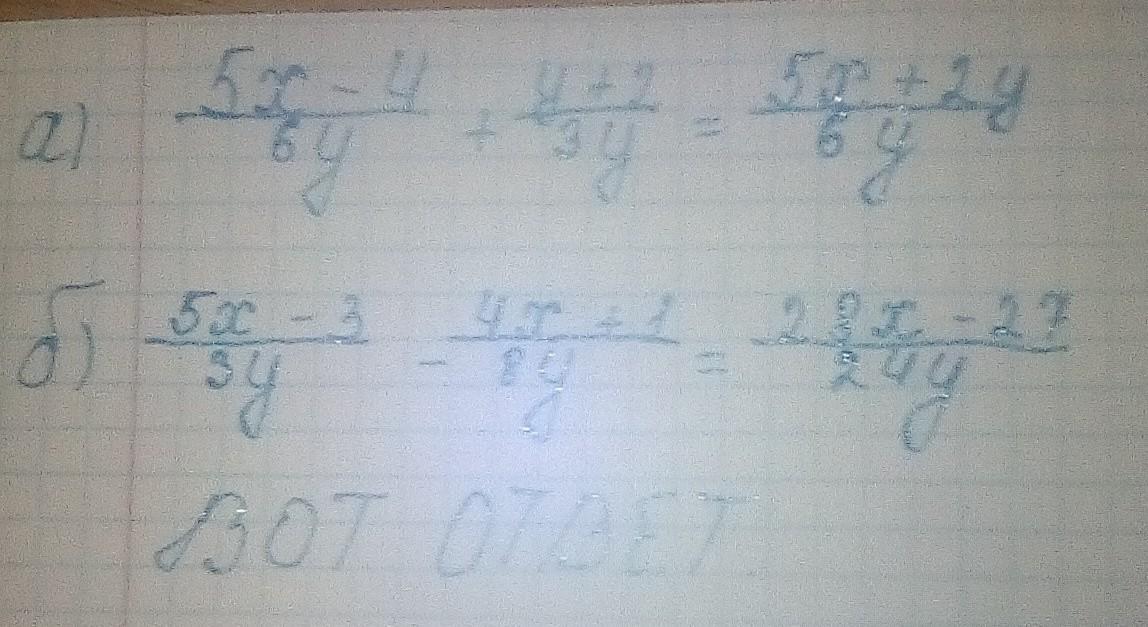 а) (5x - 4)/(6y) + (y + 2)/(3y) = (5x + 2y)/(6y)
б) (5x - 3)/(3y) - (4x + 1)/(8y) = (28x - 27)/(24y)
ВОТ ОТВЕТ